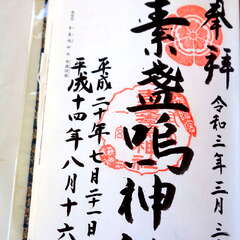 奉拝
令和三年三月
素盞嗚神社
平成二十年七月二十一日
平成十四年八月十六